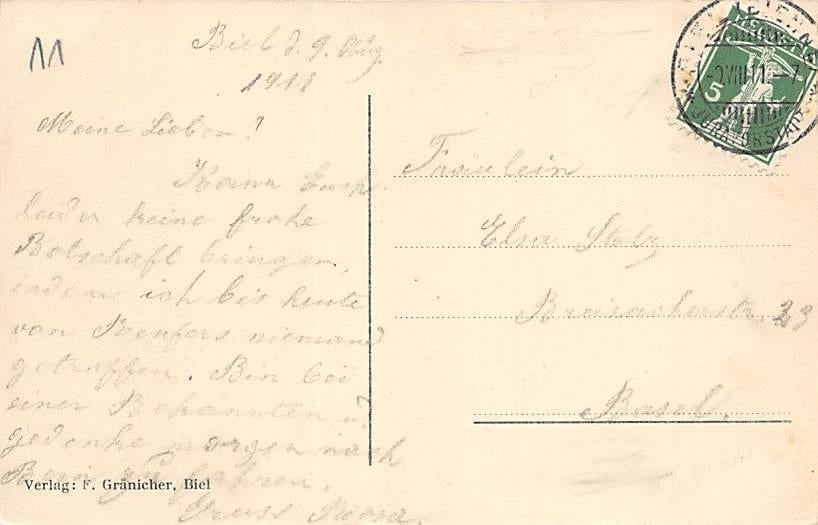 11
Biel d. 9. Aug.
1911
Meine Lieben!
Kann Euch
leider keine frohe
Botschaft bringen,
indem ich bis heute
von niemand
getroffen. Bin bei
einer Bekannten u.
gedenke morgen nach
Bern zu fahren.
Gruss Rosa.
Verlag: F. Gränicher, Biel
HELVETIA
5
VIII.11.-7
Fräulein
Elsa Stolz
Breisacherstr. 23
Basel.